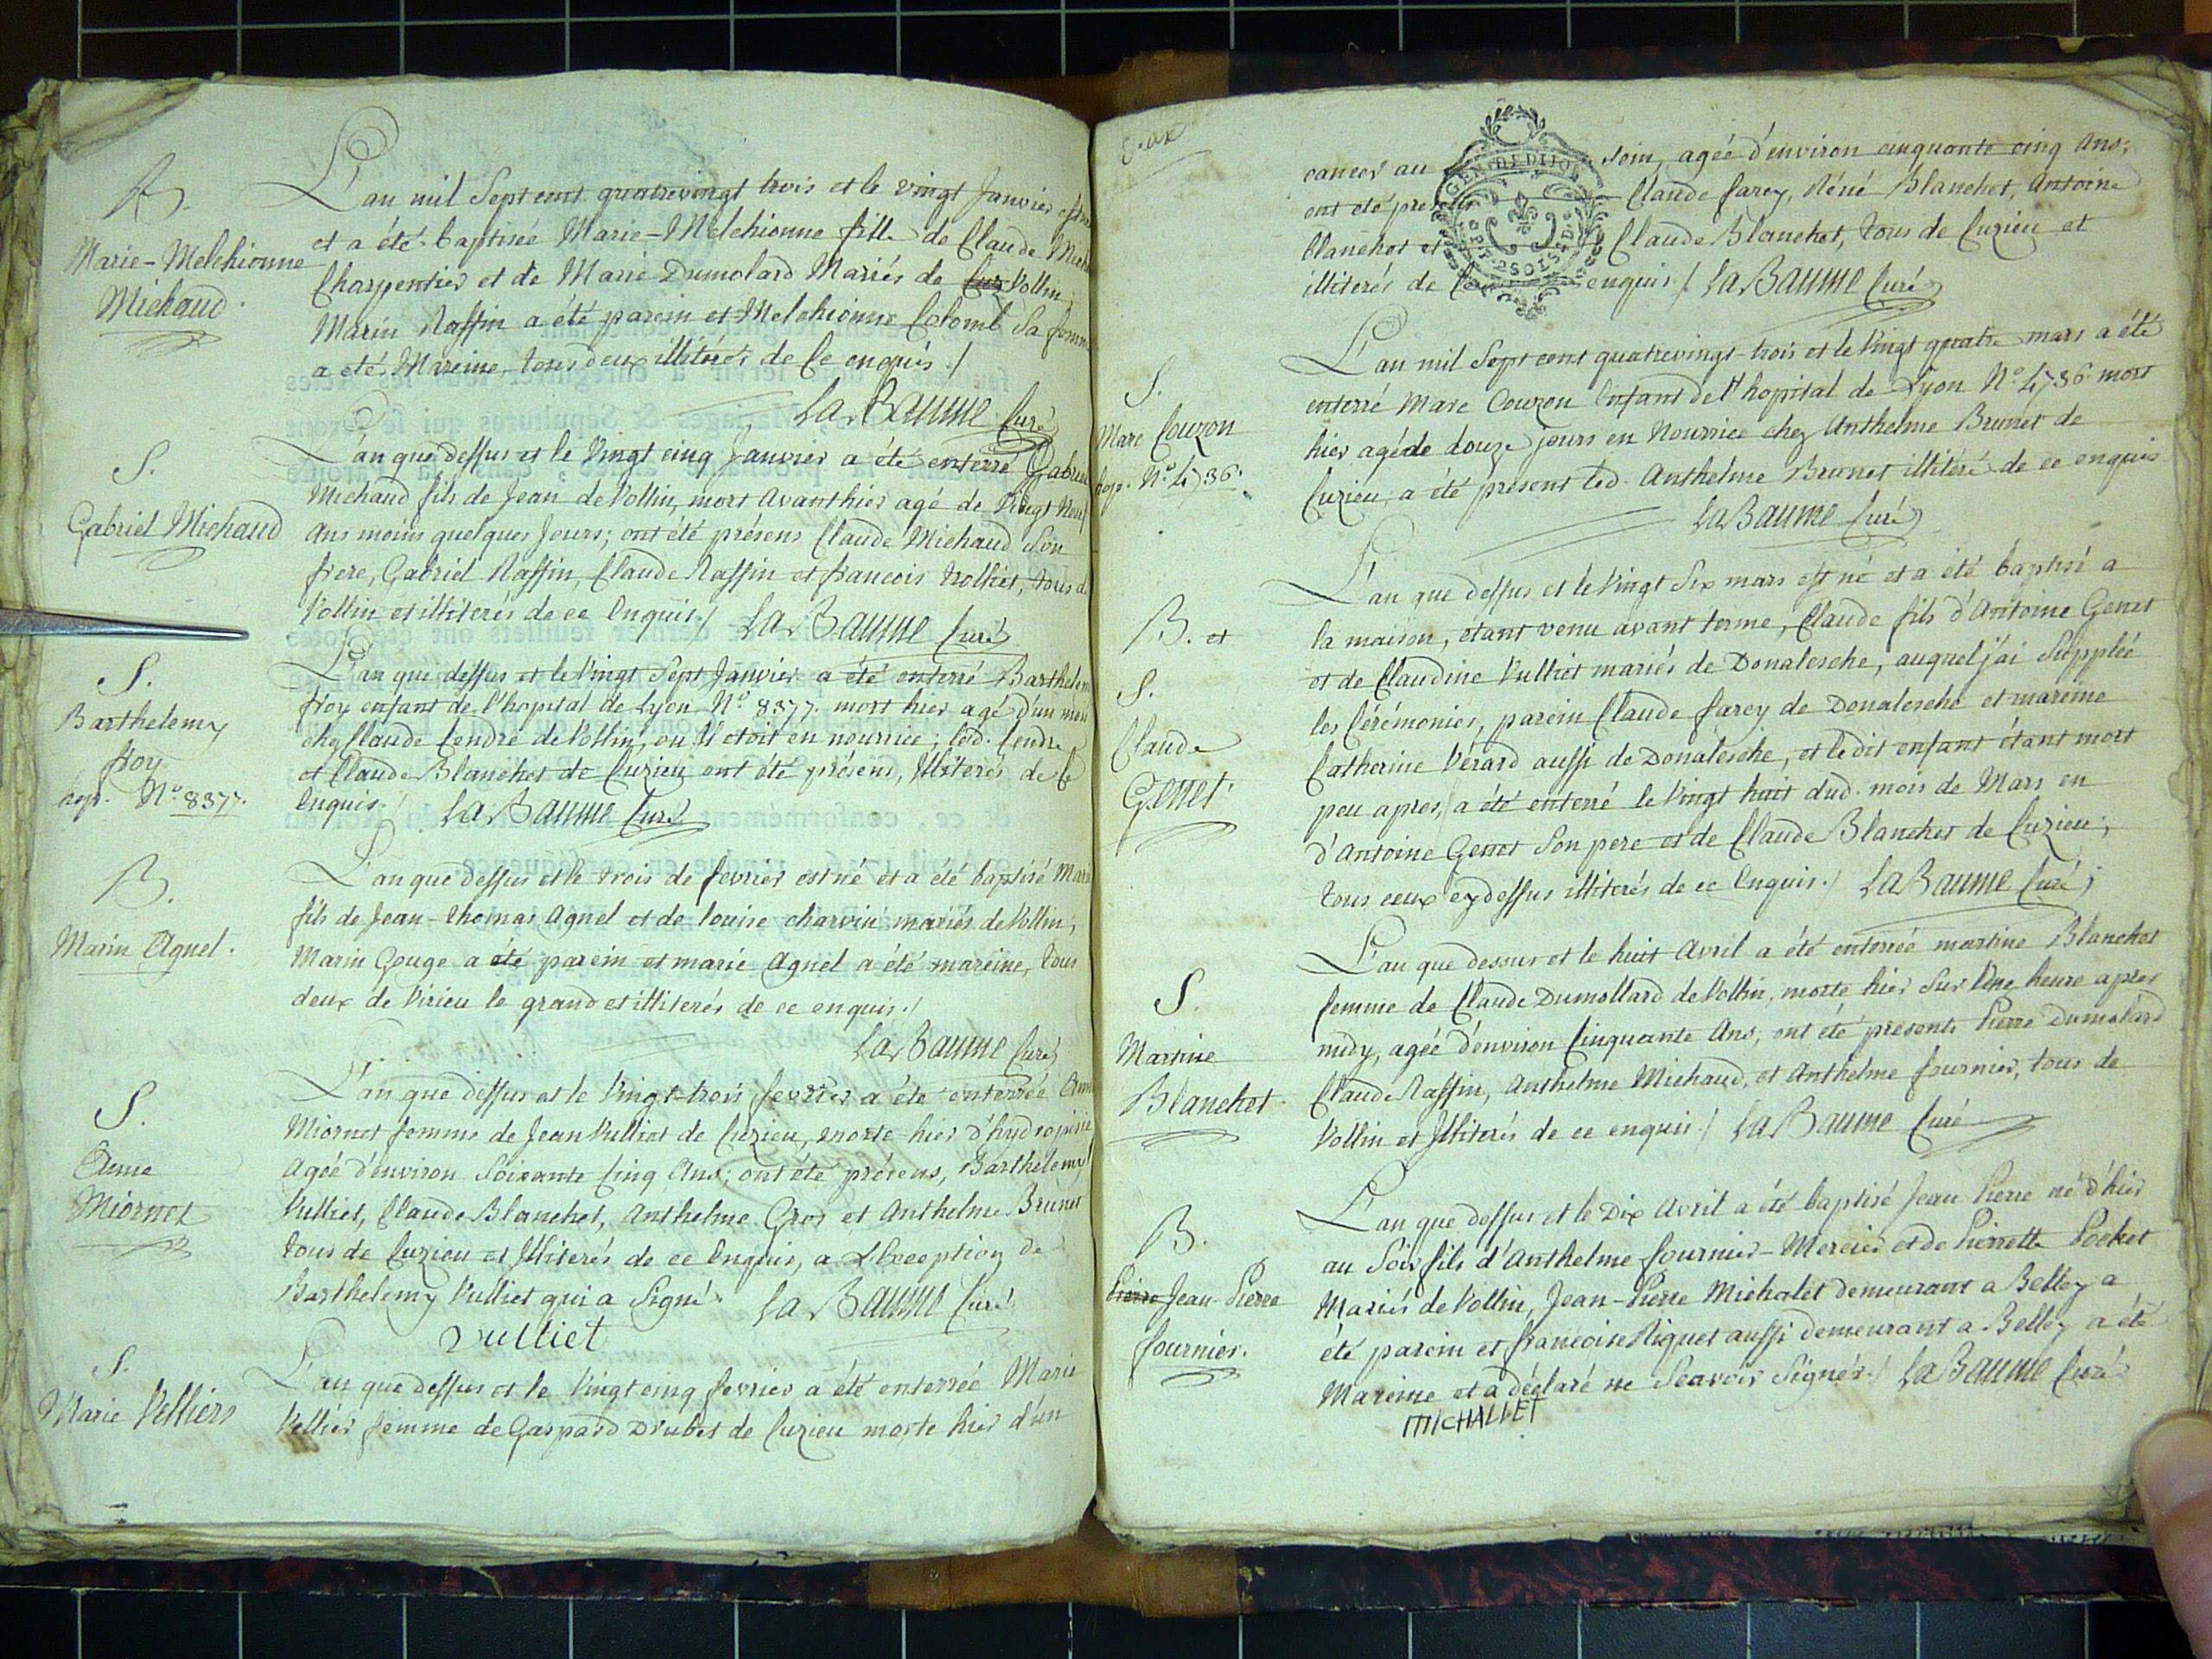 B.
Marie-Melchionne
Michaud.
L'an mil Sept cent quatrevingt trois et le vingt Janvier est né
et a été baptisée Marie-Melchionne fille de Claude Mich
Charpentier et de Marie Dumolard Mariés de Vollin;
Marin Raffin a été parein et Melchionne Colomb Sa femme
a été Mareine, tous deux illiterés de Ce enquis./
La Baume Curé
S.
Gabriel Michaud
L'an que dessus et le Vingt cinq Janvier a été enterré Gabriel
Michaud fils de Jean de Vollin, mort avanthier agé de Vingt Neuf
Ans moins quelques Jours; ont été présens Claude Michaud Son
frere, Gabriel Raffin, Claude Raffin et francois trolliet, tous de
Vollin et illiterés de ce Enquis./ La Baume Curé
S.
Barthelemy
froy
hop. N.o 8377.
L'an que dessus et le Vingt Sept Janvier a été enterré Barthelem
froy enfant de l'hopital de Lyon N.o 8377. mort hier agé d'un mois
chez Claude Cendre de Vollin, ou Il etoit en nourrice; led. Cendre
et Claude Blanchet de Cuzieu ont été présens, Illiterés de Ce
Enquis./ La Baume Curé
B.
Marin Agnel.
L'an que dessus et le trois de fevrier est né et a été baptisé Marin
fils de Jean-thomas Agnel et de louise charvin mariés de Vollin;
Marin Gouge a été parein et marie Agnel a été mareine, tous
deux de Virieu le grand et illiterés de ce enquis./
La Baume Curé
S.
Anne
Miornet
L'an que dessus et le Vingt-trois fevrier a été enterrée Anne
Miornet femme de Jean Vulliet de Cuzieu, morte hier d'hydropisie
Agée d'environ Soixante Cinq Ans; ont été présens, Barthelemy
Vulliet, Claude Blanchet, Anthelme Gros et Anthelme Brunet
tous de Cuzieu et Illiterés de ce Enquis, a L'Exception de
Barthelemy Vulliet qui a Signé. La Baume Curé
Vulliet
S.
Marie Velliers
L'an que dessus et le Vingt cinq fevrier a été enterrée Marie
Vellier femme de Gaspard Drubet de Cuzieu morte hier d'un
deux
cancer au soin, agée d'environ cinquante cinq Ans;
ont été présens Claude farcy, Réné Blanchet, Antoine
Blanchet et Claude Blanchet, tous de Cuzieu et
illiterés de Ce enquis./ La Baume Curé
GEN. DE DIJON
S.
Marc Couzon
hop. N.o 4736.
L'an mil Sept cent quatrevingt-trois et le Vingt quatre mars a été
enterré Marc Couzon Enfant de l'hopital de Lyon N.o 4736. mort
hier agé de douze jours en Nourrice chez Anthelme Brunet de
Cuzieu; a été présent led. Anthelme Brunet illiteré de ce enquis
La Baume Curé
B. et
S.
Claude
Genet
L'an que dessus et le Vingt Six mars est né et a été baptisé a
la maison, étant venu avant terme, Claude fils d'Antoine Genet
et de Claudine Vulliet mariés de Donalesche, auquel j'ai Supplée
les Cérémonies, parein Claude farcy de Donalesche et mareine
Catherine Vérard aussi de Donalesche, et ledit enfant étant mort
peu apres, a été enterré le Vingt huit dud. mois de Mars en
d'Antoine Genet Son pere et de Claude Blanchet de Cuzieu;
tous ceux cy dessus illiterés de ce Enquis./ La Baume Curé;
S.
Martine
Blanchet.
L'an que dessus et le huit Avril a été enterrée martine Blanchet
femme de Claude Dumollard de Vollin, morte hier Sur Une heure apres
midy, agée d'environ Cinquante Ans; ont été présents Pierre Dumolard
Claude Raffin, Anthelme Michaud, et Anthelme fournier, tous de
Vollin et Illiterés de ce enquis./ La Baume Curé
B.
Pierre Jean-Pierre
fournier.
L'an que dessus et le Dix Avril a été baptisé Jean Pierre né d'hier
au Soir fils d'Anthelme fournier-Mercier et de Pierrette Pochet
Mariés de Vollin, Jean-Pierre Michalet demeurant a Belley a
été parein et francoise Riquet aussi demeurant a Belley a été
Mareine et a déclaré ne Scavoir Signer./ La Baume Curé
MICHALLET